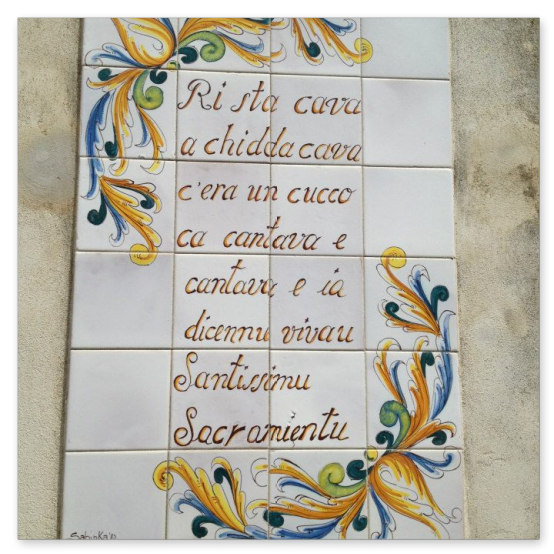 Ri sta cava
a chidda cava
c'era un cucco
ca cantava e
cantava e ia
dicennu vivau
Santissimu
Sacramientu